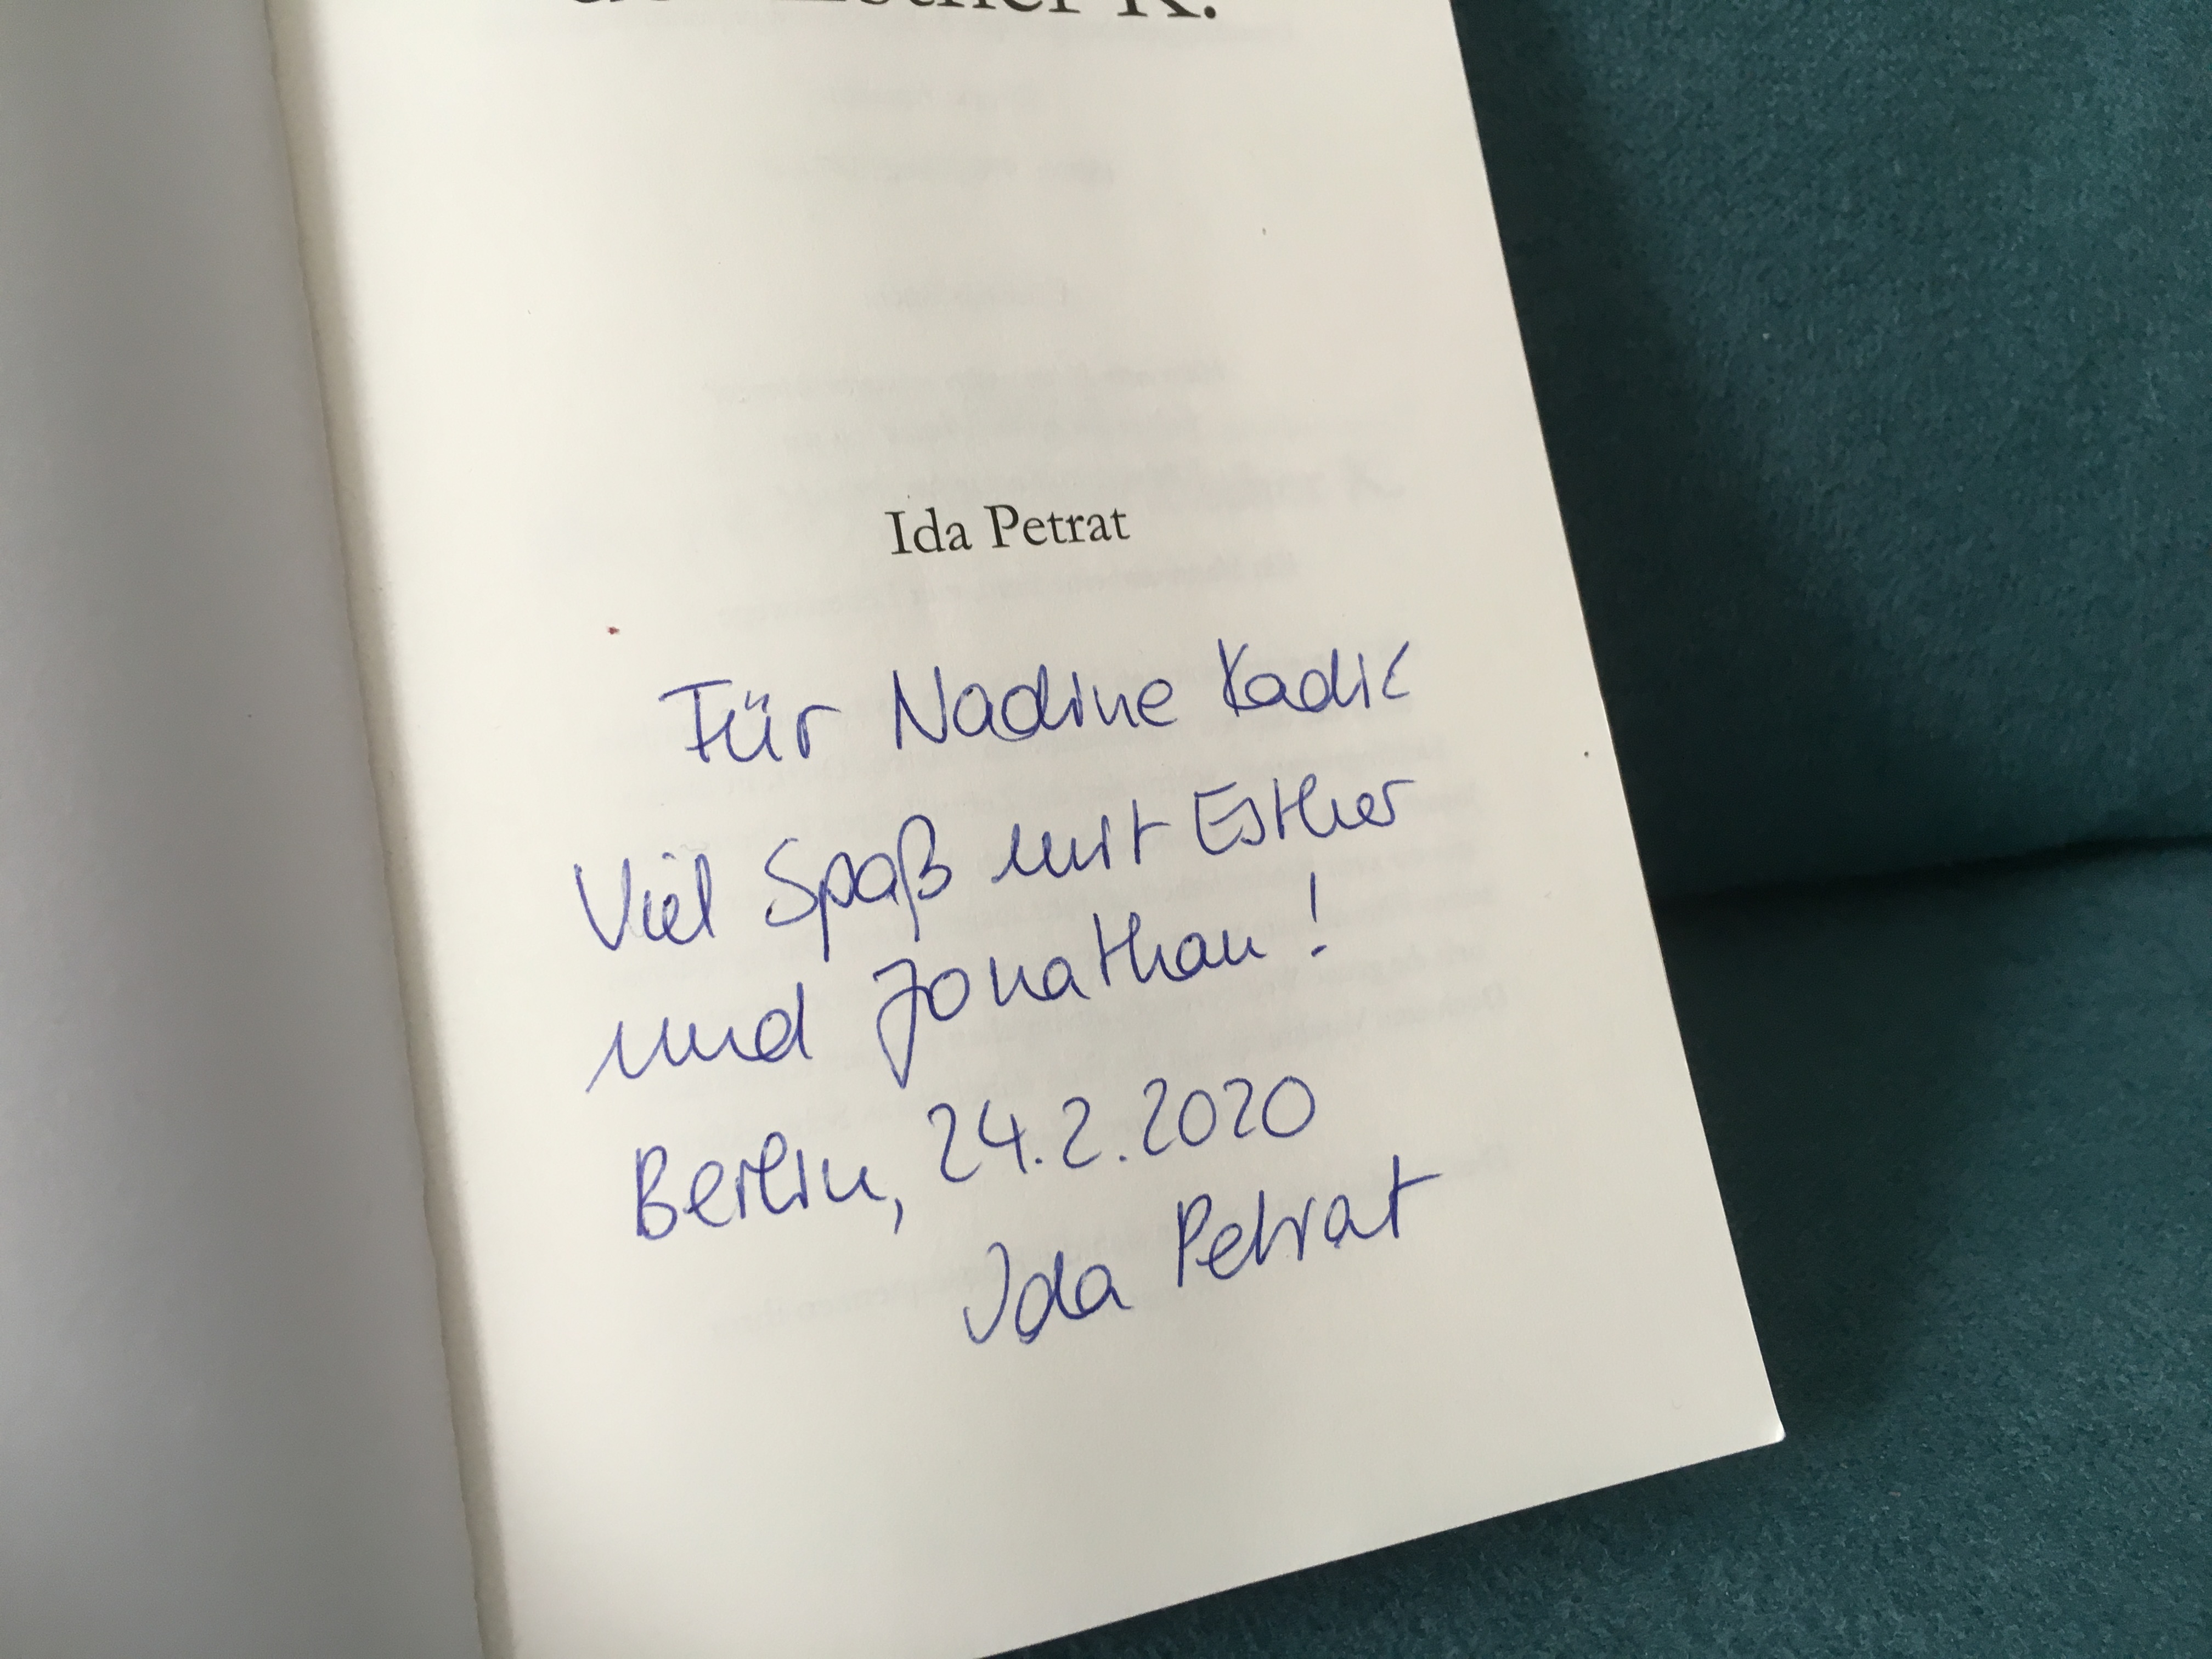 Esther K.
Ida Petrat
Für Nadine Kadić
Viel Spaß mit Esther
und Jonathan!
Berlin, 24.2.2020
Ida Petrat